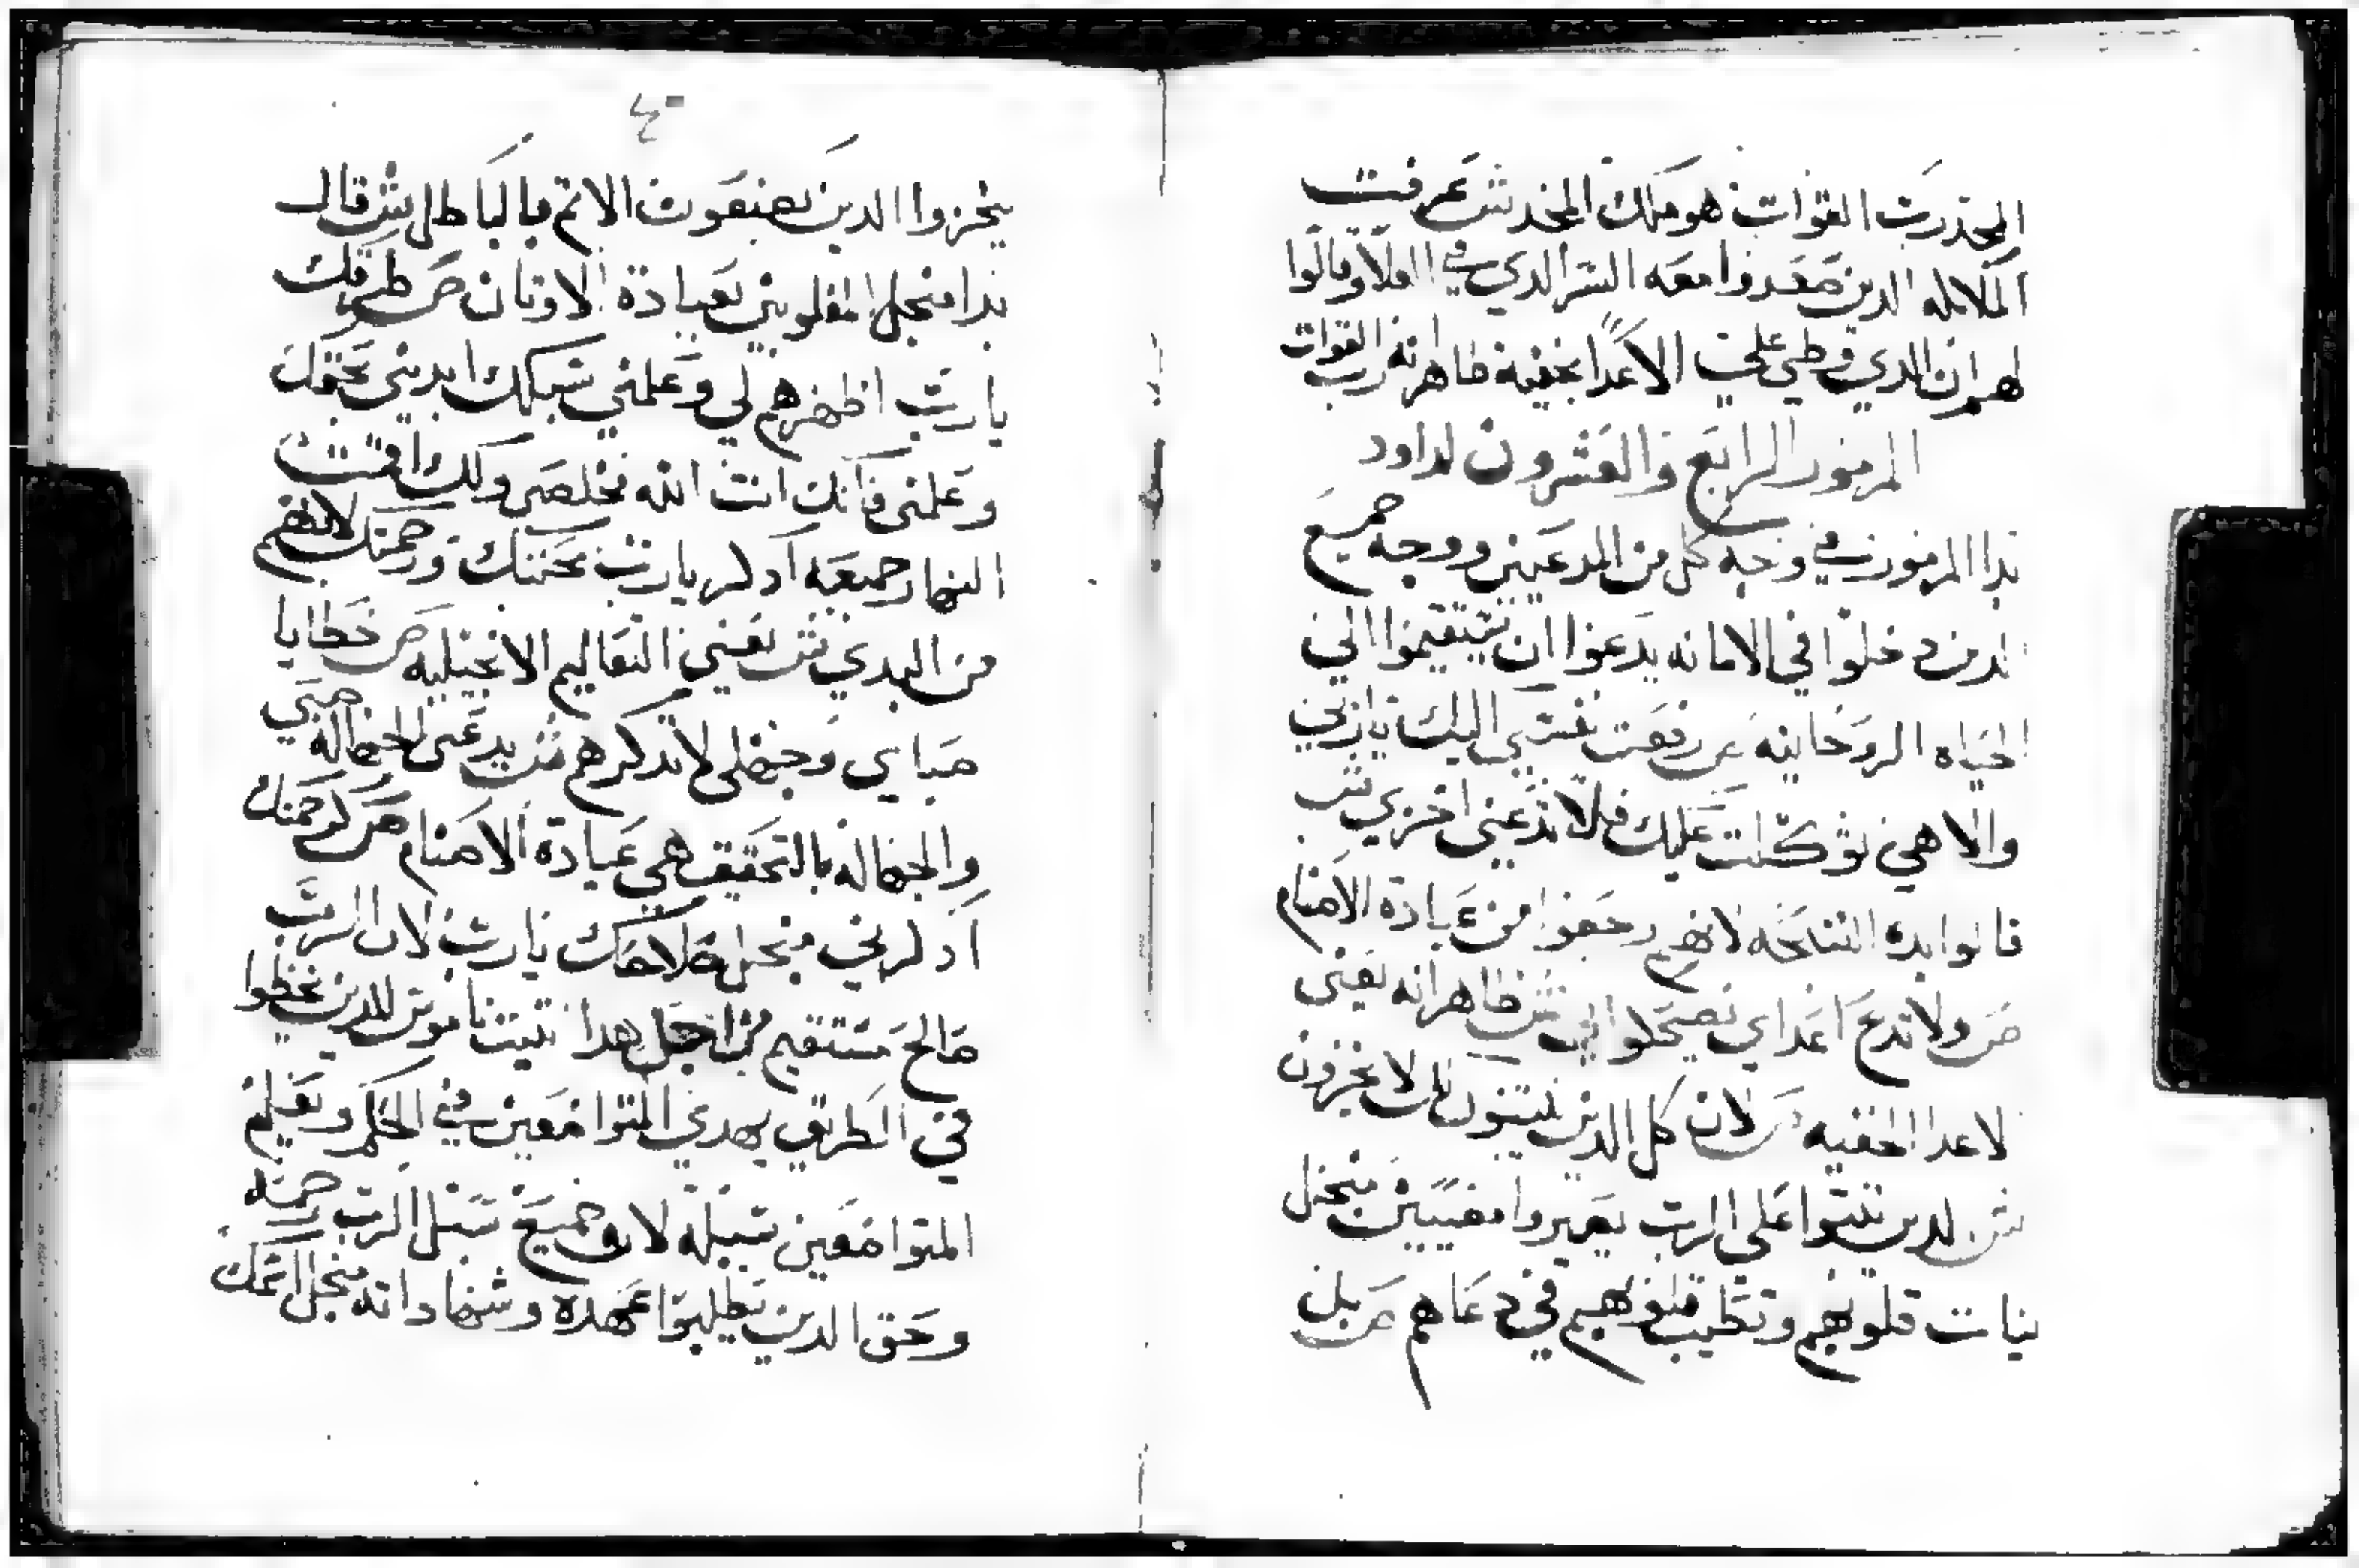 المجد رب القوات هو ملك المجد ش عرفت
الملايكه الدين صعدوا معه السر الدي في العلا وقالوا
لهم ان الدي وطي علي الاعدا بخفيه ظاهر انه رب القوات
المزمور الرابع والعشرون لداود
بدا المزمور في وجه كل من المدعيين ووجه جميع
الدين دخلوا في الامانه يدعوا ان يستقيموا الي
الحياه الروحانيه ص رفعت نفسي اليك يا ربي
والاهي توكلت عليك فلا تدعني اخزي ش
قالوا بده التسبحه لانهم رجعوا من عبادة الاصنام
ص ولا تدع اعداي يضحكوا بي ش ظاهر انه يعني
الاعدا الخفيه ص لان كل الدين يثبتون لك لا يخزون
ش الدين ثبتوا علي الرب يصيروا مضيين منجل
نيات قلوبهم وتطيب قلوبهم في دعاهم ص بل
٤٠
يخزوا الدين يصنعون الاثم بالباطل ش قال
بدا منجل المغلوبين بعبادة الاوتان ص طرقك
يا رب اظهرهم لي وعلمني سبلك اهديني بحقك
وعلمني فانك انت الله مخلصي ولك رافقت
النهار جميعه ادكر يا رب محنتك ورحمتك لانهم
من البدي ش يعني التعاليم الانجيليه ص خطايا
صباي وجهلي لا تدكرهم ش يدعي الجهاله صبي
والجهاله بالتحقيق هي عبادة الاصنام ص كرحمتك
ادكرني منجل صلاحك يا رب لان الرب
صالح مستقيم من اجل هدا يثبت ناموس للدين يخطوا
في الطريق يهدي المتواضعين في الحكم ويعلم
المتواضعين سبله لان جميع سبل الرب رحمه
وحق الدين يطلبوا عهده وشهاداته منجل اسمك